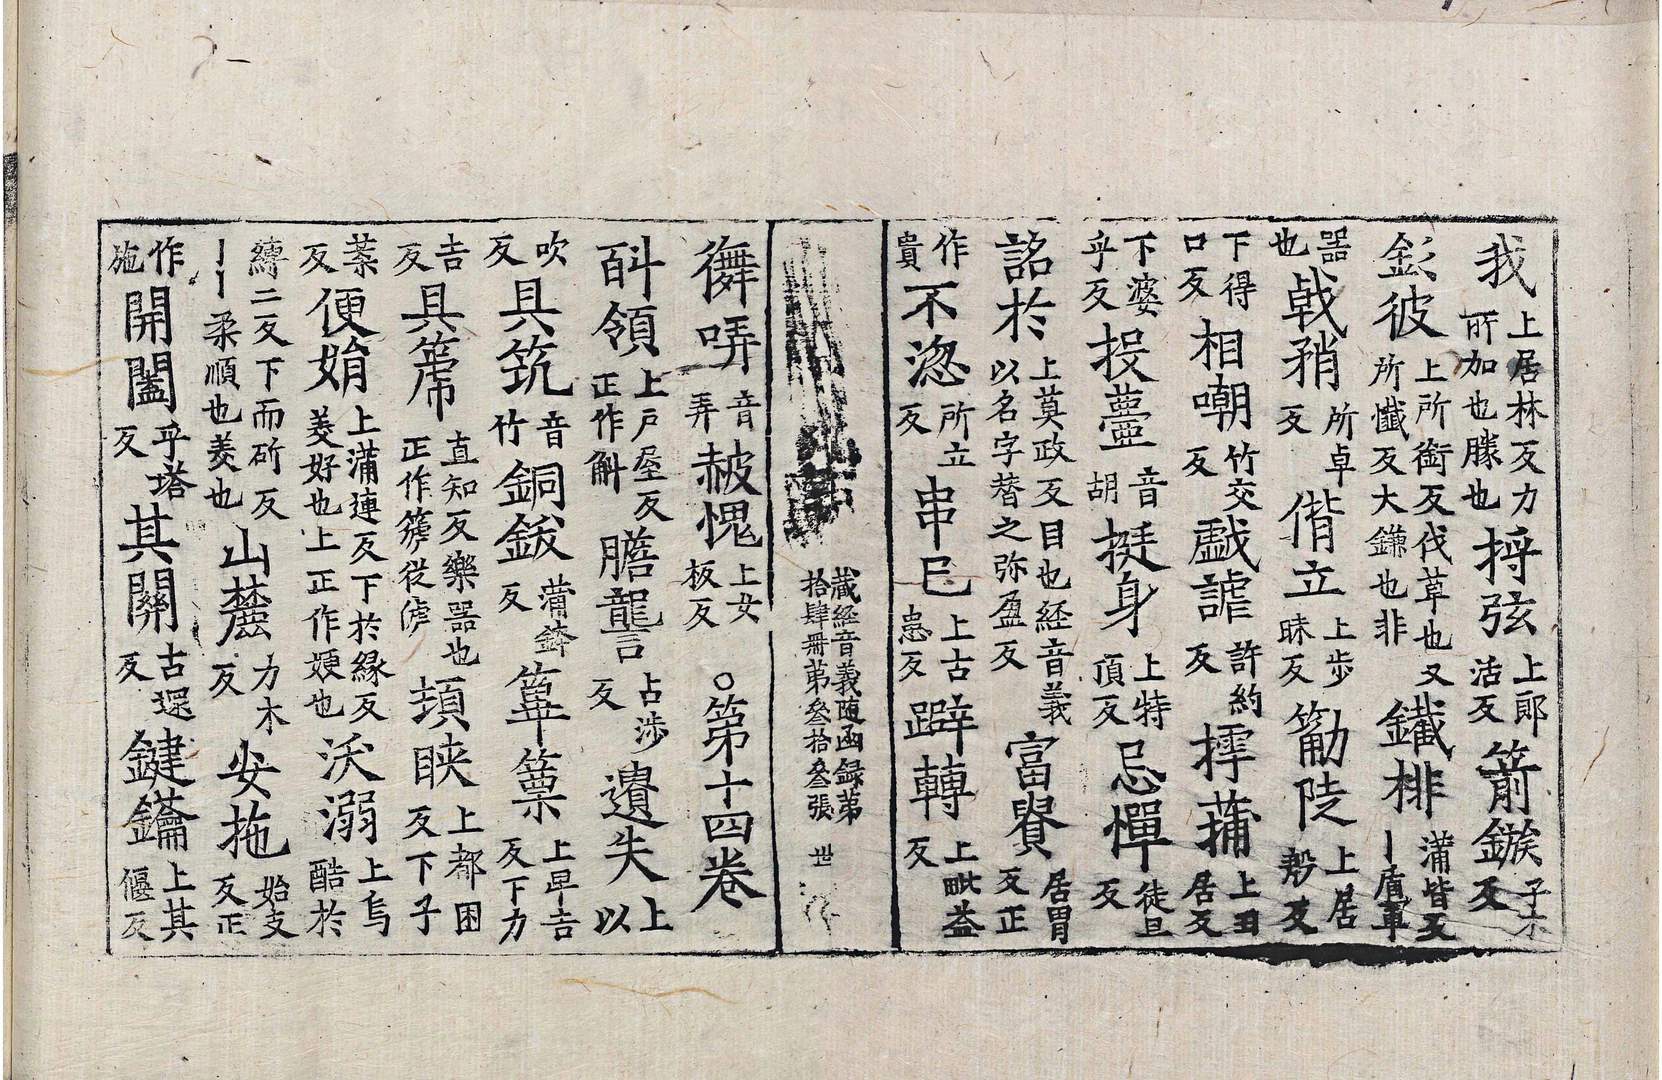 我上居林反力所加也賸也捋弦上郎活反箭鏃子木反
釤彼上所銜反伐草也又所懺反大鐮也非鑯棑蒲皆反丨盾軍
器也戟矟所卓反偝立上步昧反簕陡上居勒反
下得口反相嘲竹交反戱謔許約反摴蒱上丑居反
下婆乎反投壼音胡挺身上特頂反忌憚徒旦反
詺於上莫政反目也経音義以名字替之弥盈反富貴居胃反正
作貴不㴔所立反串巳上古患反躃轉上毗益反
藏経音義随函録苐拾肆册苐叄拾叄張 世
儛哢音弄赧愧上女板反○第十四卷
㪷領上戸屋反正作斛膽讋占涉反遺失上以
吹反具筑音竹銅鈸蒲鉢反篳篥上卑吉反下力
吉反具篪直知反樂器也正作篪從虒頓䀹上都困反下子
葉反便娟上蒲連反下於緣反美好也上正作㛹也沃溺上烏酷於
縛二反下而斫反丨丨柔順也美也山麓力木反安拖始支反正
作施開闔乎塔反其關古還反鍵鑰上其偃反